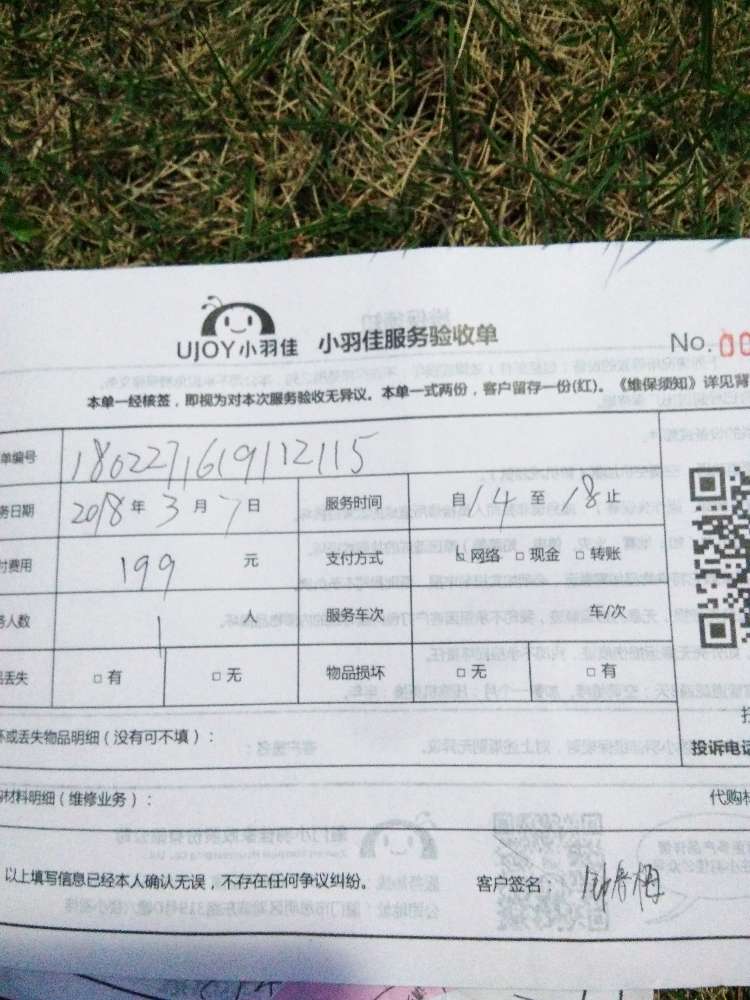 UJOY小羽佳 小羽佳服务验收单
No. 00
本单一经核签，即视为对本次服务验收无异议。本单一式两份，客户留存一份(红)。《维保须知》详见背
单编号 1802271619112115
务日期 2018年 3月 7日 服务时间 自14至18止
付费用 199 元 支付方式 网络 □ 现金 □ 转账
务人数 1 人 服务车次 车/次
品丢失 □ 有 □ 无 物品损坏 □ 无 □ 有
坏或丢失物品明细（没有可不填）：
投诉电话
购材料明细（维修业务）： 代购材
以上填写信息已经本人确认无误，不存在任何争议纠纷。 客户签名：